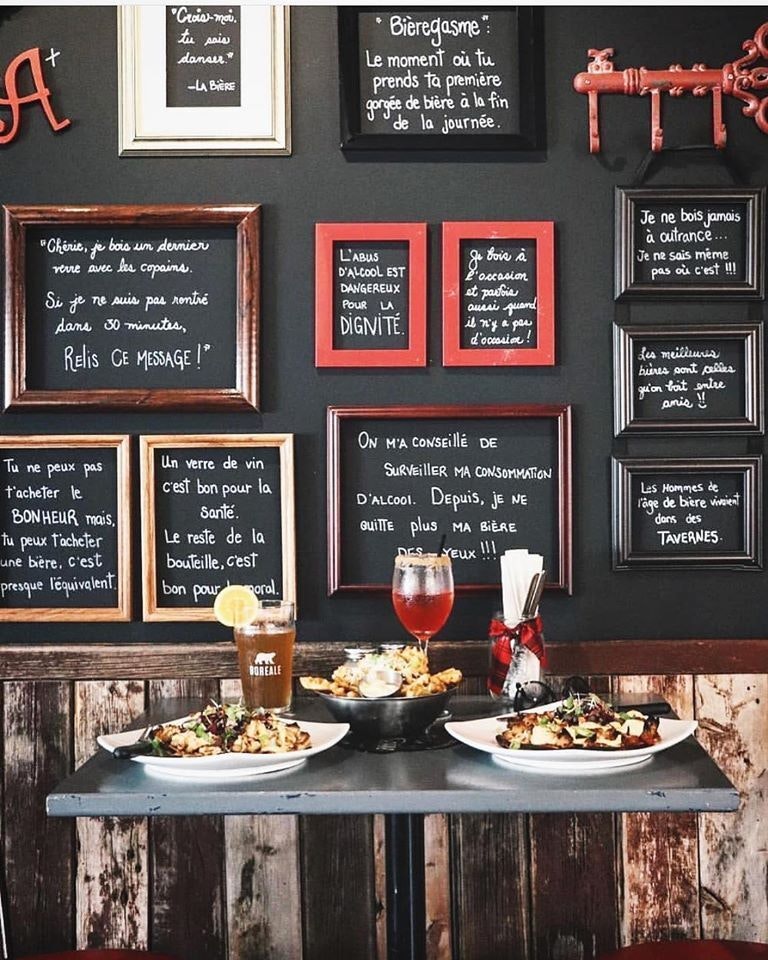 A+
"Crois-moi,
tu sais
danser."
—LA BIÈRE
"Bièregasme":
Le moment où tu
prends ta première
gorgée de bière à la fin
de la journée.
"Chérie, je bois un dernier
verre avec les copains.
Si je ne suis pas rentré
dans 30 minutes,
RELIS CE MESSAGE!"
L'ABUS
D'ALCOOL EST
DANGEREUX
POUR LA
DIGNITÉ.
Je bois à
l'occasion
et parfois
aussi quand
il n'y a pas
d'occasion!
Je ne bois jamais
à outrance...
Je ne sais même
pas où c'est!!!
Les meilleures
bières sont celles
qu'on boit entre
amis!!
Tu ne peux pas
t'acheter le
BONHEUR mais,
tu peux t'acheter
une bière, c'est
presque l'équivalent.
Un verre de vin
c'est bon pour la
santé.
Le reste de la
bouteille, c'est
bon pour le moral.
ON M'A CONSEILLÉ DE
SURVEILLER MA CONSOMMATION
D'ALCOOL. DEPUIS, JE NE
QUITTE PLUS MA BIÈRE
DES YEUX!!!
Les Hommes de
l'âge de bière vivaient
dans des
TAVERNES.
BORÉALE